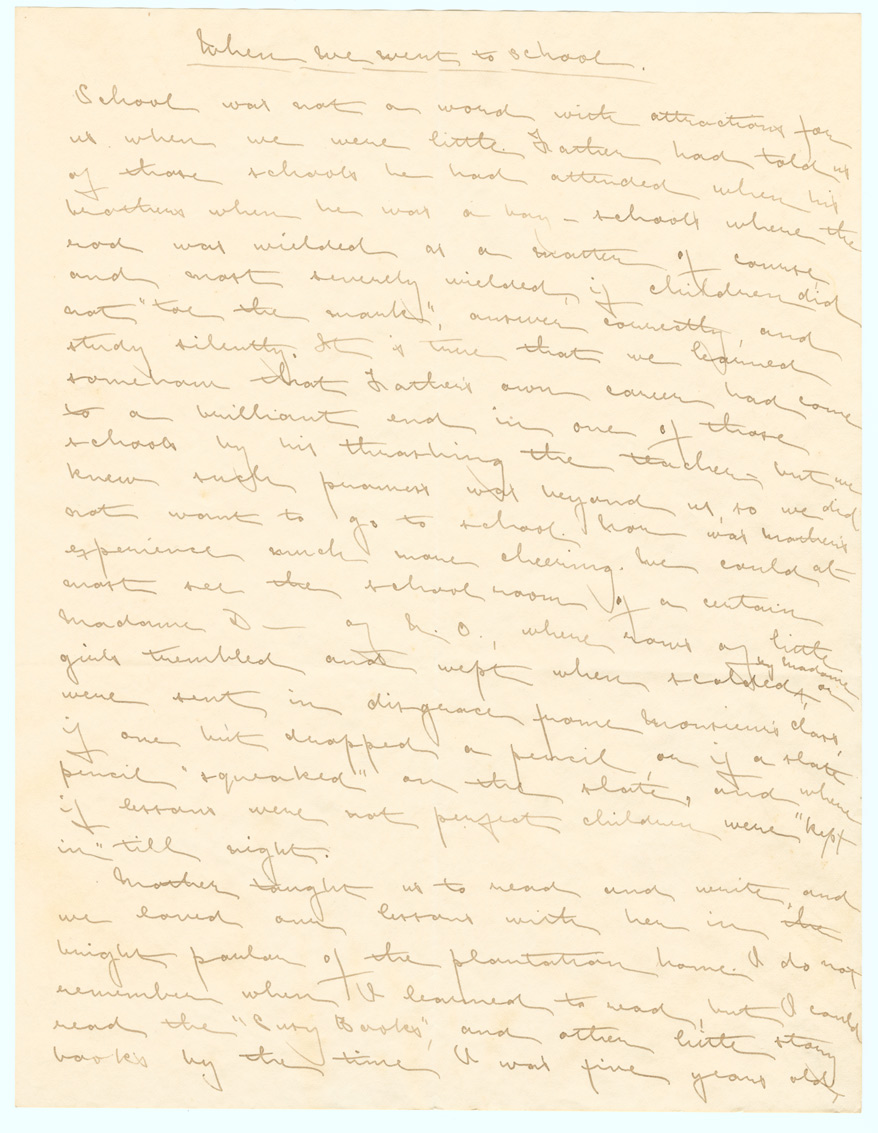 When we went to school.
School was not a word with attractions for
us when we were little. Father had told us
of those schools he had attended when his
brothers when he was a boy – schools where the
rod was wielded as a matter of course,
and most severely wielded, if children did
not "toe the mark", answer correctly, and
study silently. It is true that we learned
somehow that Father's own career had come
to a brilliant end in one of those
schools by his thrashing the teacher – but we
knew such prowess was beyond us, so we did
not want to go to school. Nor was Mother's
experience much more cheering. We could at
most see the school room of a certain
Madame D — of N. O., where rows of little
girls trembled and wept when scolded by Madame, or
were sent in disgrace from Monsieur's class,
if one but dropped a pencil, or if a slate
pencil "squeaked" on the slate, and where
if lessons were not perfect children were "kept
in" till night.
Mother taught us to read and write, and
we loved our lessons with her in the
bright parlor of the plantation home. I do not
remember when I learned to read, but I could
read the "Susy Books", and other little story
books by the time I was five years old,